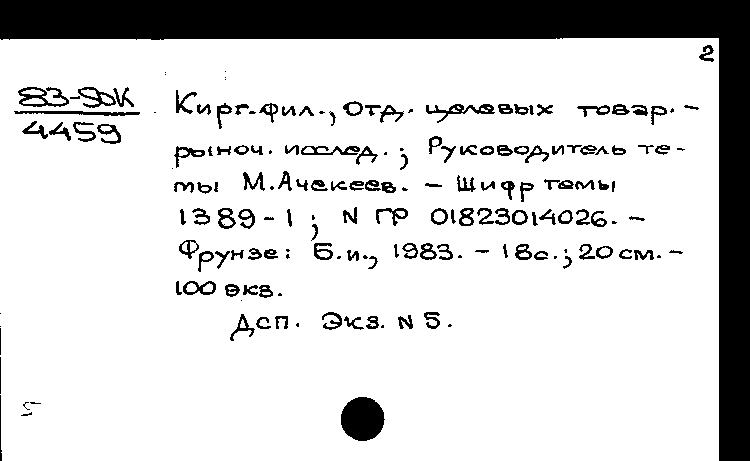 2
83-9ДК
4459
Кирг. фил., Отд. целевых товар. -
рыноч. исслед. ; Руководитель те-
мы М. Ачекеев. - Шифр темы
1389-1 ; N ГР 01823014026. -
Фрунзе: Б.и., 1983. - 18с.; 20 см. -
100 экз.
Дсп. Экз. N 5.
5